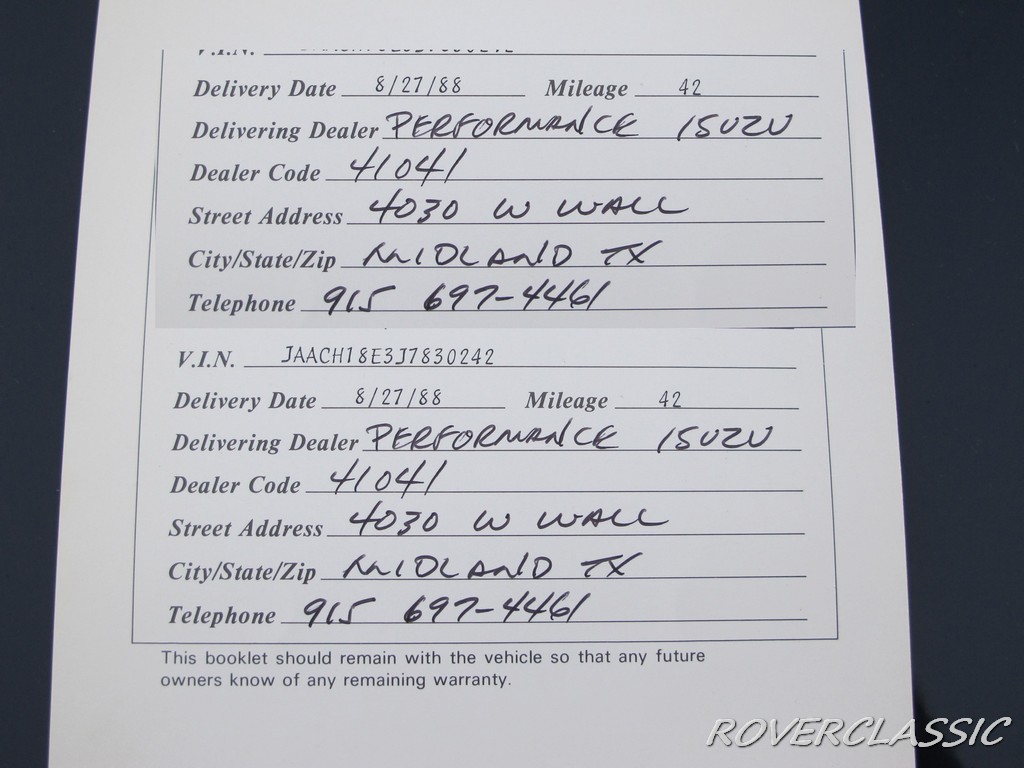 V.I.N.
Delivery Date 8/27/88 Mileage 42
Delivering Dealer PERFORMANCE ISUZU
Dealer Code 41041
Street Address 4030 W WALL
City/State/Zip MIDLAND TX
Telephone 915 697-4461
V.I.N. JAACH18E3J7830242
Delivery Date 8/27/88 Mileage 42
Delivering Dealer PERFORMANCE ISUZU
Dealer Code 41041
Street Address 4030 W WALL
City/State/Zip MIDLAND TX
Telephone 915 697-4461
This booklet should remain with the vehicle so that any future
owners know of any remaining warranty.
ROVERCLASSIC